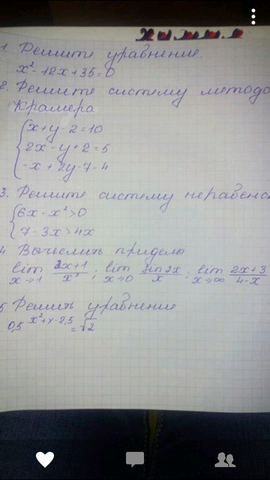 Химия
1. Решите уравнение.
x² - 12x + 35 = 0
2. Решите систему методо
Крамера
x + y - 2 = 10
2x - y + 2 = 5
-x + 2y - 7 - 4
3. Решите систему неравенс
6x - x² > 0
7 - 3x > 4x
4 Вычеслить приделы
lim x→1 3x+1/x² ; lim x→0 sin2x/x ; lim x→∞ 2x+3/4-x
5 Решить уравнение
0,5 x²+x-2,5 = √2